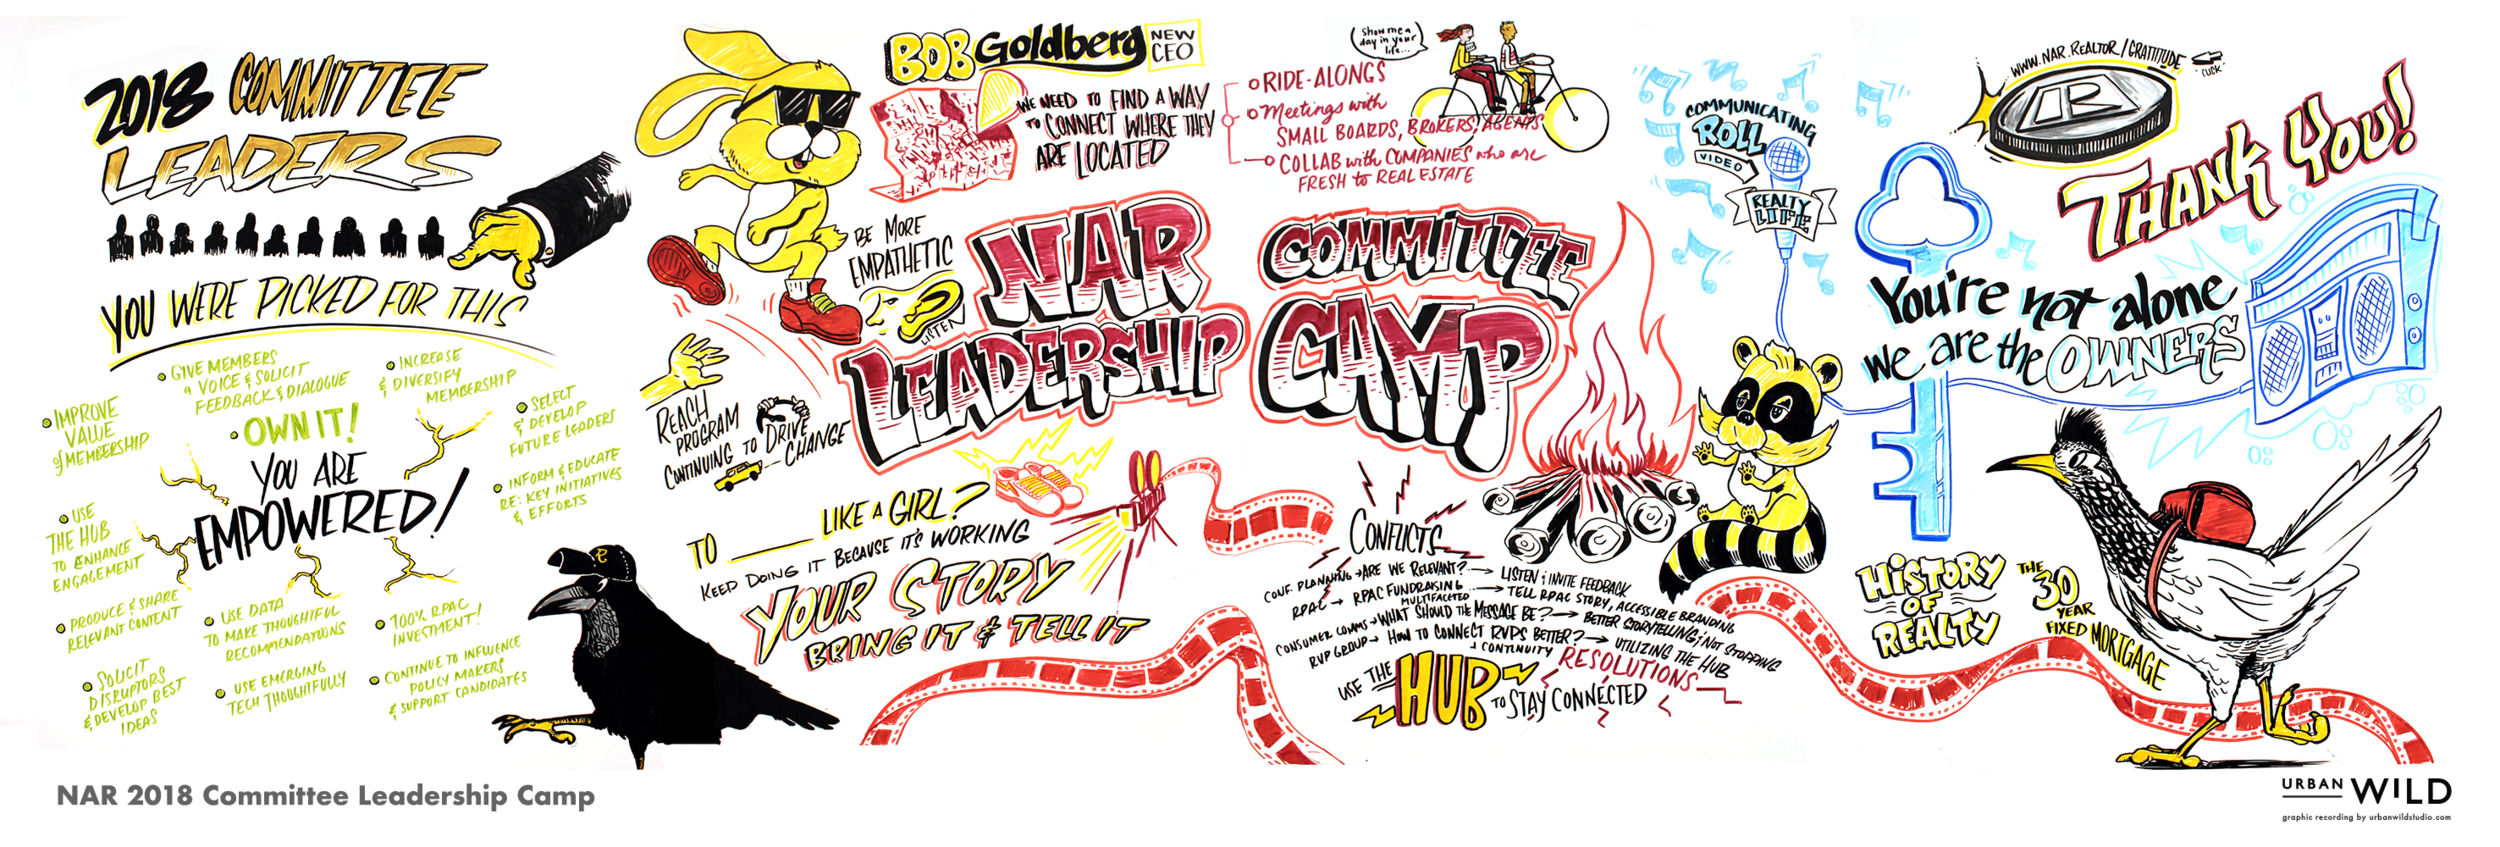 2018 COMMITTEE
LEADERS
YOU WERE PICKED FOR THIS
GIVE MEMBERS
a VOICE & SOLICIT
FEEDBACK & DIALOGUE
INCREASE
& DIVERSIFY
MEMBERSHIP
IMPROVE
VALUE
of MEMBERSHIP
OWN IT!
SELECT
& DEVELOP
FUTURE LEADERS
YOU ARE
EMPOWERED!
INFORM & EDUCATE
RE: KEY INITIATIVES
& EFFORTS
USE
THE HUB
TO ENHANCE
ENGAGEMENT
PRODUCE & SHARE
RELEVANT CONTENT
USE DATA
TO MAKE THOUGHTFUL
RECOMMENDATIONS
100% RPAC
INVESTMENT!
SOLICIT
DISRUPTORS
& DEVELOP BEST
IDEAS
USE EMERGING
TECH THOUGHTFULLY
CONTINUE TO INFLUENCE
POLICY MAKERS
& SUPPORT CANDIDATES
BOB Goldberg NEW
CEO
WE NEED TO FIND A WAY
TO CONNECT WHERE THEY
ARE LOCATED
RIDE-ALONGS
Meetings with
SMALL BOARDS, BROKERS, AGENTS
COLLAB with COMPANIES who are
FRESH to REAL ESTATE
Show me a
day in your
life...
BE MORE
EMPATHETIC
LISTEN
REACH
PROGRAM
CONTINUING TO DRIVE
CHANGE
NAR
LEADERSHIP
COMMITTEE
CAMP
TO ______ LIKE A GIRL?
KEEP DOING IT BECAUSE IT'S WORKING
YOUR STORY
BRING IT & TELL IT
R
CONFLICTS
CONF. PLANNING → ARE WE RELEVANT? → LISTEN & INVITE FEEDBACK
RPAC → RPAC FUNDRAISING → TELL RPAC STORY, ACCESSIBLE BRANDING
MULTIFACETED
CONSUMER COMMS → WHAT SHOULD THE MESSAGE BE? → BETTER STORYTELLING & NOT STOPPING
RVP GROUP → HOW TO CONNECT RVPS BETTER? → UTILIZING THE HUB
CONTINUITY
RESOLUTIONS
USE THE HUB TO STAY CONNECTED
COMMUNICATING
ROLL
VIDEO
REALTY
LIFE
WWW.NAR.REALTOR/GRATITUDE
CLICK
R
THANK YOU!
You're not alone
we are the OWNERS
HISTORY
OF
REALTY
THE
30
YEAR
FIXED MORTGAGE
NAR 2018 Committee Leadership Camp
URBAN WILD
graphic recording by urbanwildstudio.com